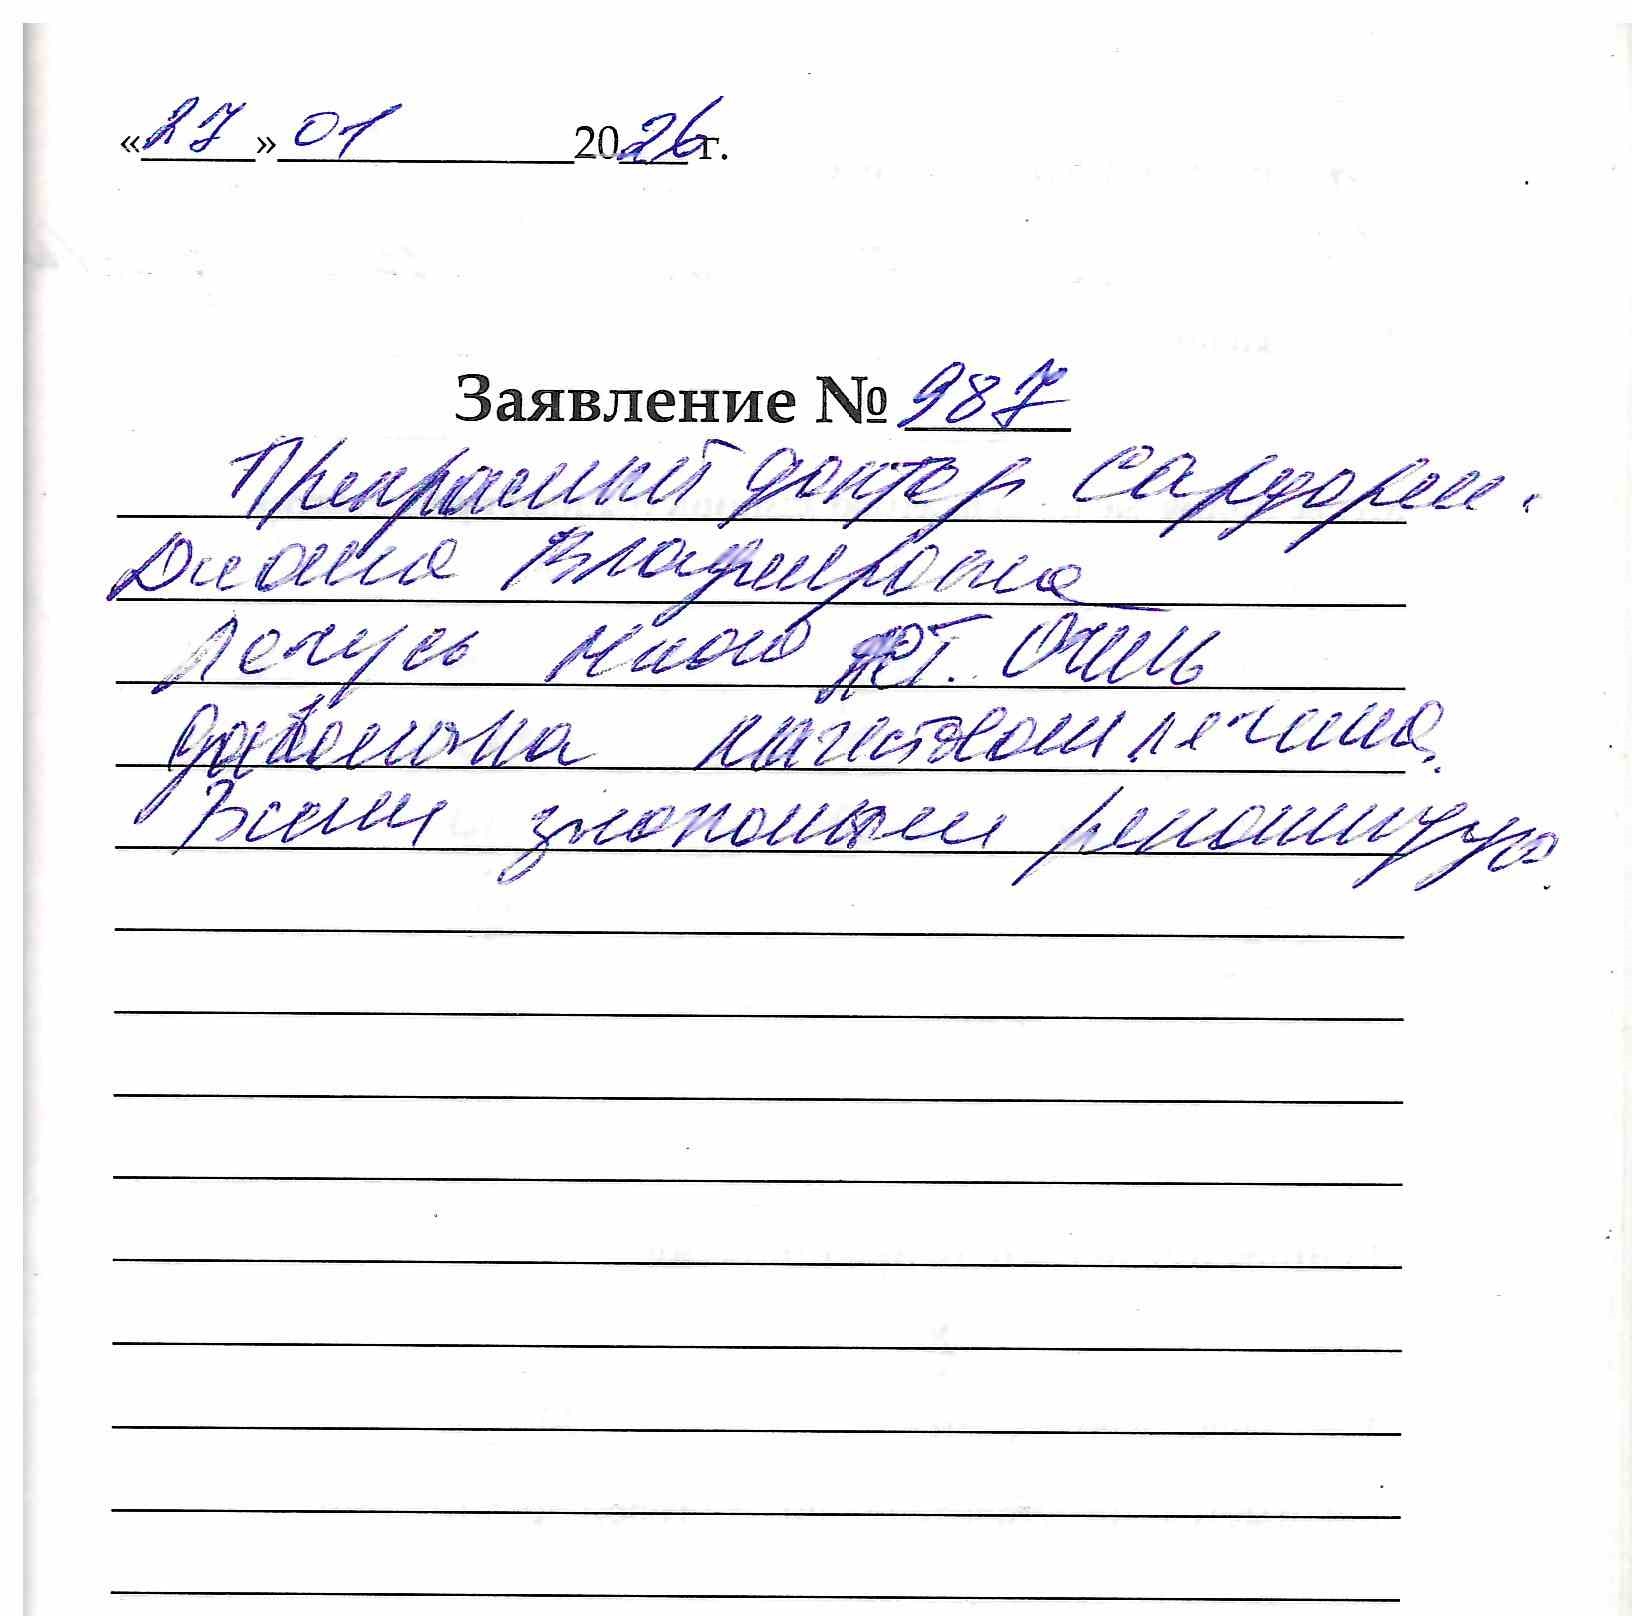 «27» 01 2026 г.
Заявление № 987
Прекрасный доктор
Диана Владимировна
Лечусь много лет. Очень
довольна качеством лечения.
Всем знакомым рекомендую.